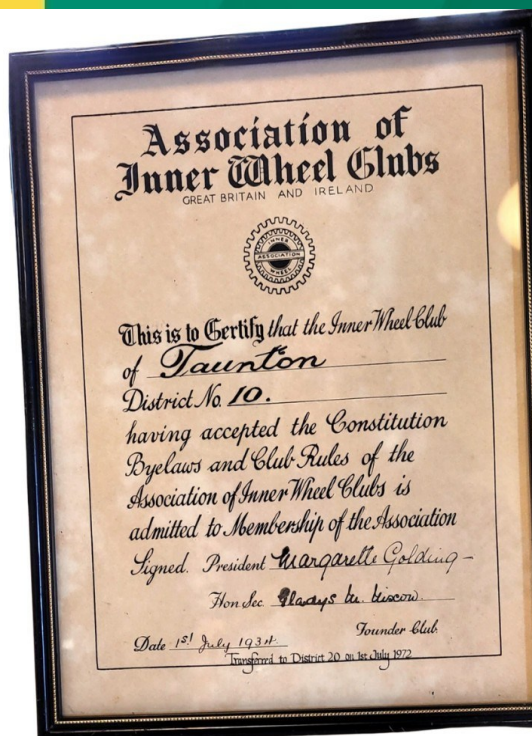 Association of
Inner Wheel Clubs
GREAT BRITAIN AND IRELAND
INNER
ASSOCIATION
WHEEL
This is to Certify that the Inner Wheel Club
of Taunton
District No. 10.
having accepted the Constitution
Byelaws and Club Rules of the
Association of Inner Wheel Clubs is
admitted to Membership of the Association
Signed. President Margarette Golding
Hon Sec. Gladys M.
Founder Club.
Date 1st July 1934.
Transferred to District 20 on 1st July 1972